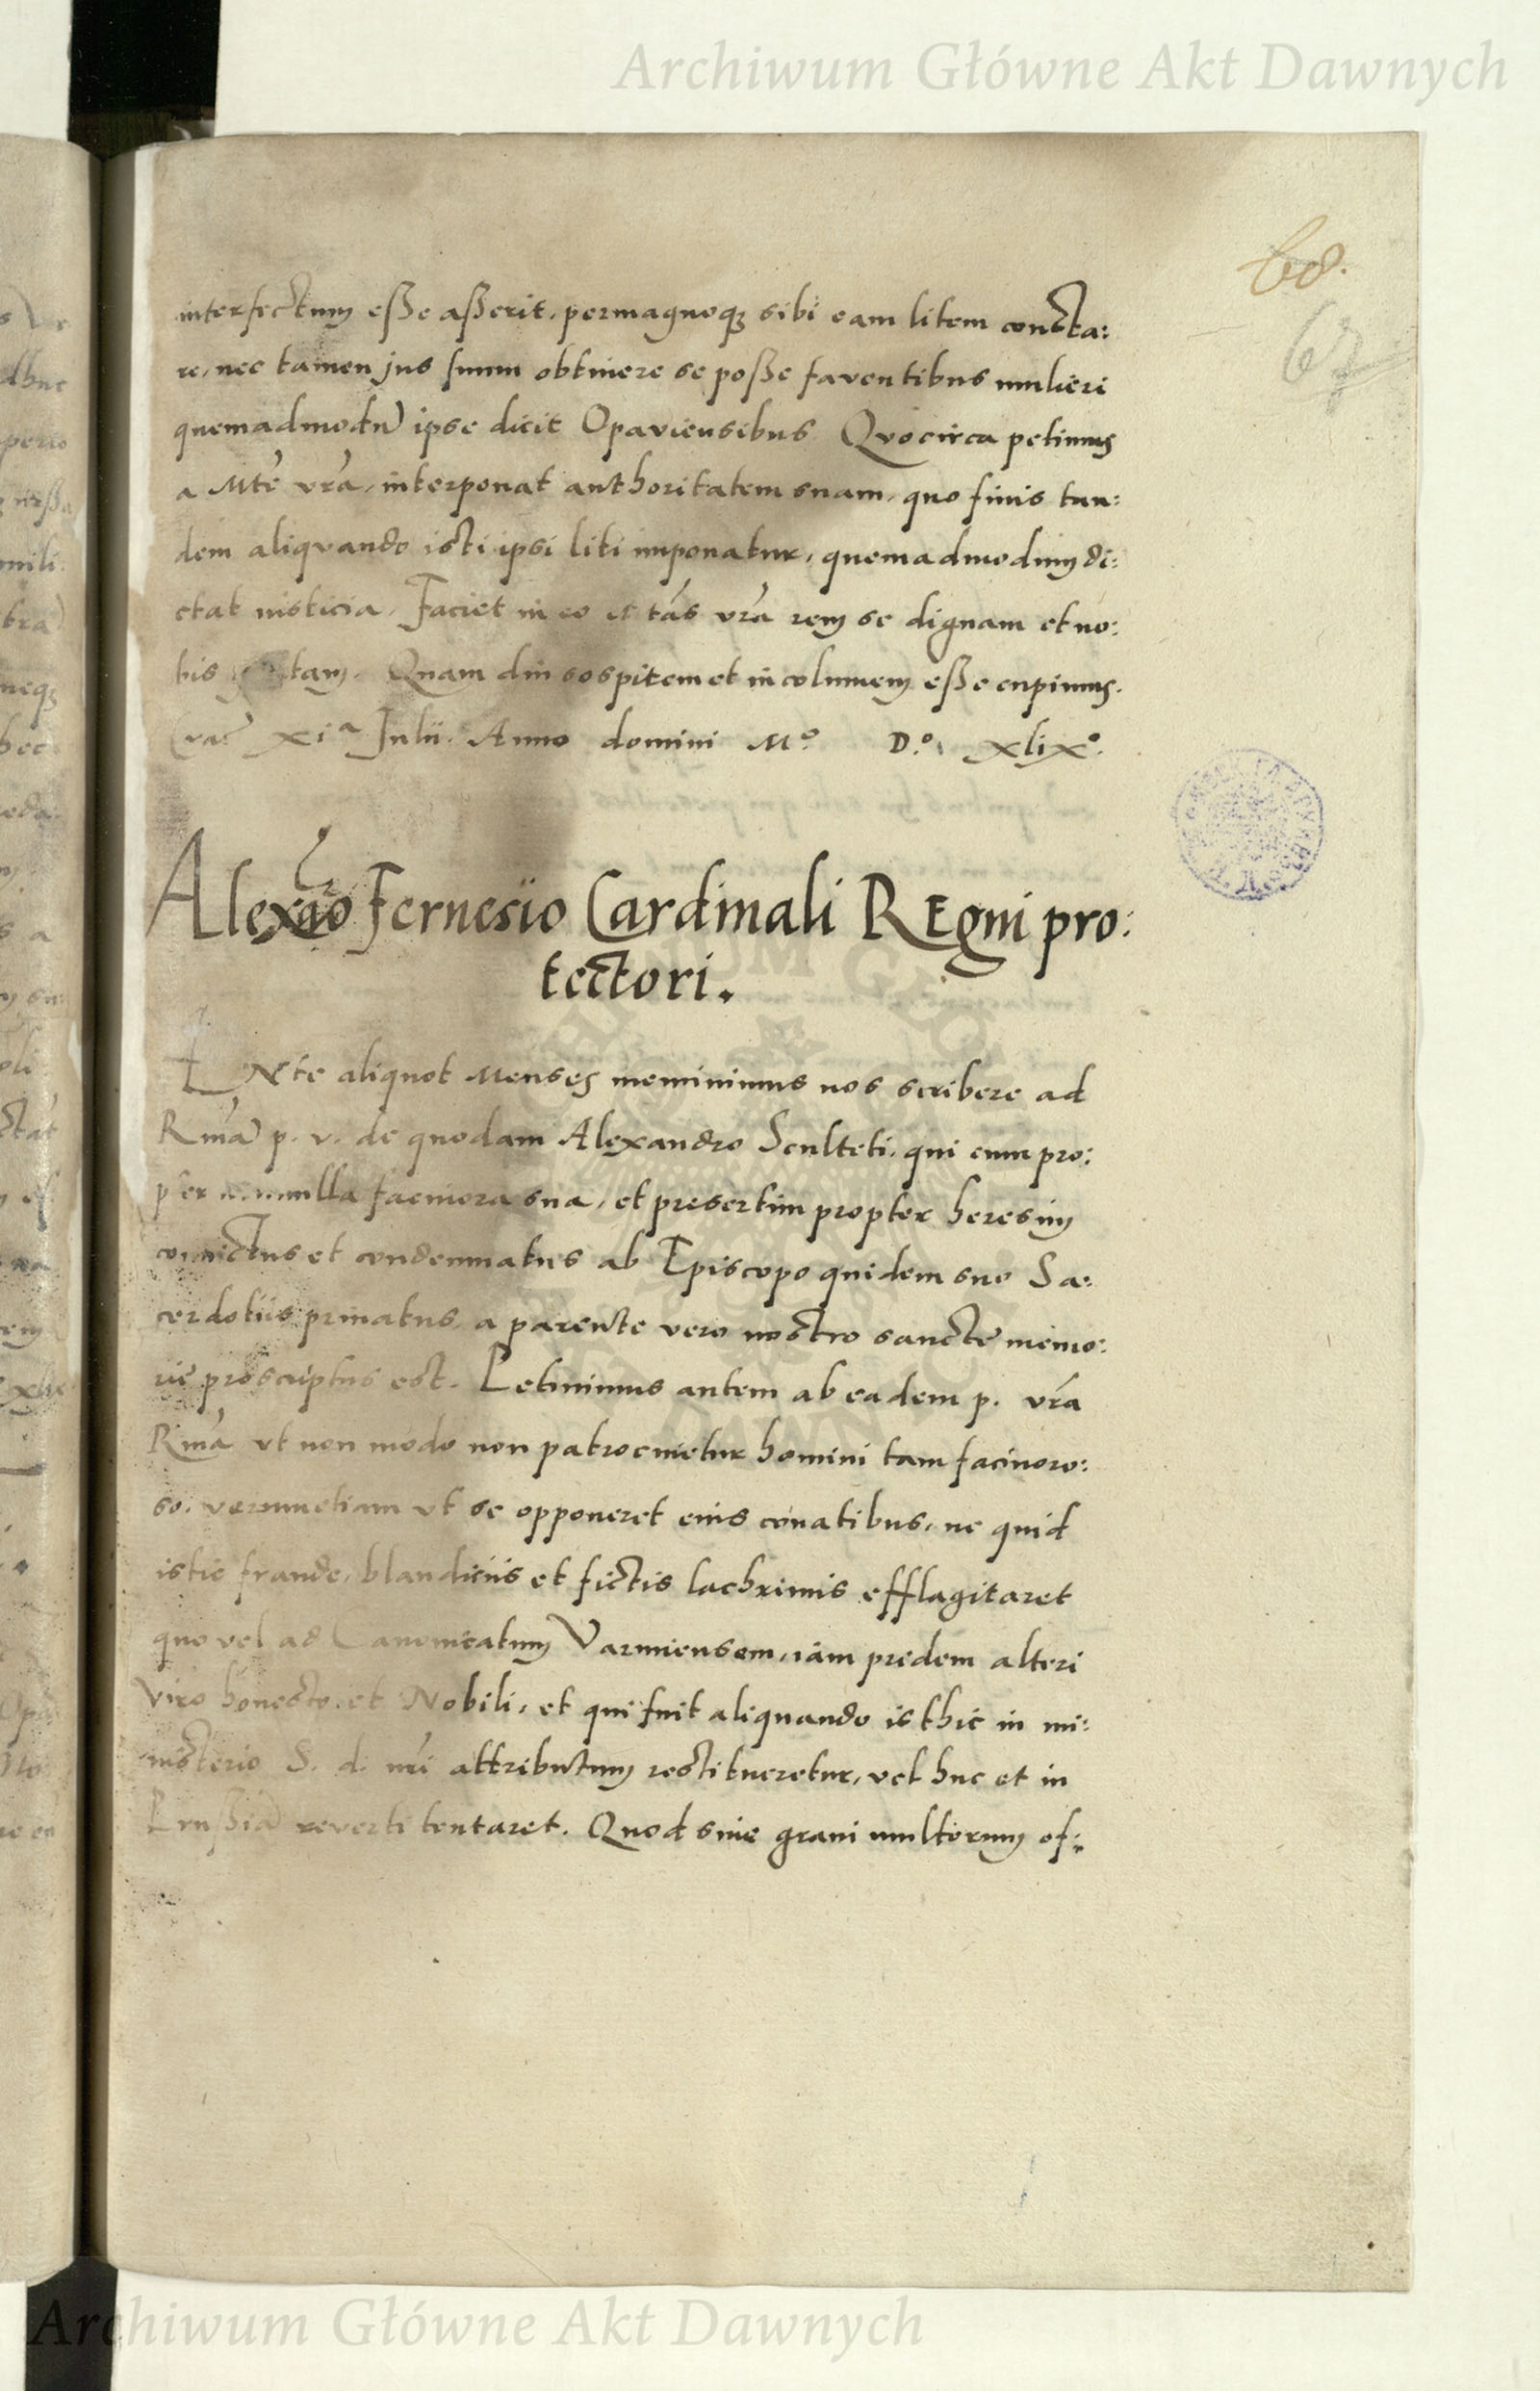 Archiwum Główne Akt Dawnych
68.
67
interfectum eße aßerit, permagnoq3 sibi eam litem consta:
re, nec tamen jus suum obtinere se poße faventibus mulieri
quemadmodũ ipse dicit Opaviensibus Quocirca petimus
a Mte vra, interponat authoritatem suam, quo finis tan:
dem aliquando isti ipsi liti imponatur, quemadmodum di:
ctat iusticia, Faciet in eo Mtas vra rem se dignam et no:
bis Quam diu sospitem et incolumem eße cupimus.
Crac xia Julii. Anno domini Mº D.º xlixº.
Alexro Fernesio Cardinali Regni pro:
tectori.
ANte aliquot Menses meminimus nos scribere ad
Rmã p. v. de quodam Alexandro Sculteti, qui cum pro:
pter nonnulla facinora sua, et presertim propter heresim
convictus et condemnatus ab Episcopo quidem suo Sa:
cerdotiis privatus, a parente vero nostro sancte memo:
rie proscriptus est. Petivimus autem ab eadem p. vra
Rma ut non modo non patrocinetur homini tam facinoro:
so, verumetiam ut se opponeret eius conatibus, ne quid
istic fraude, blandiciis et fictis lachrimis efflagitaret
quo vel ad Canonicatum Varmiensem, iam pridem alteri
viro honesto, et Nobili, et qui fuit aliquando isthic in mi:
nisterio S. d. nri attributum restitueretur, vel huc et in
Prußiã reverti tentaret. Quod sine gravi multorum of:
Archiwum Główne Akt Dawnych